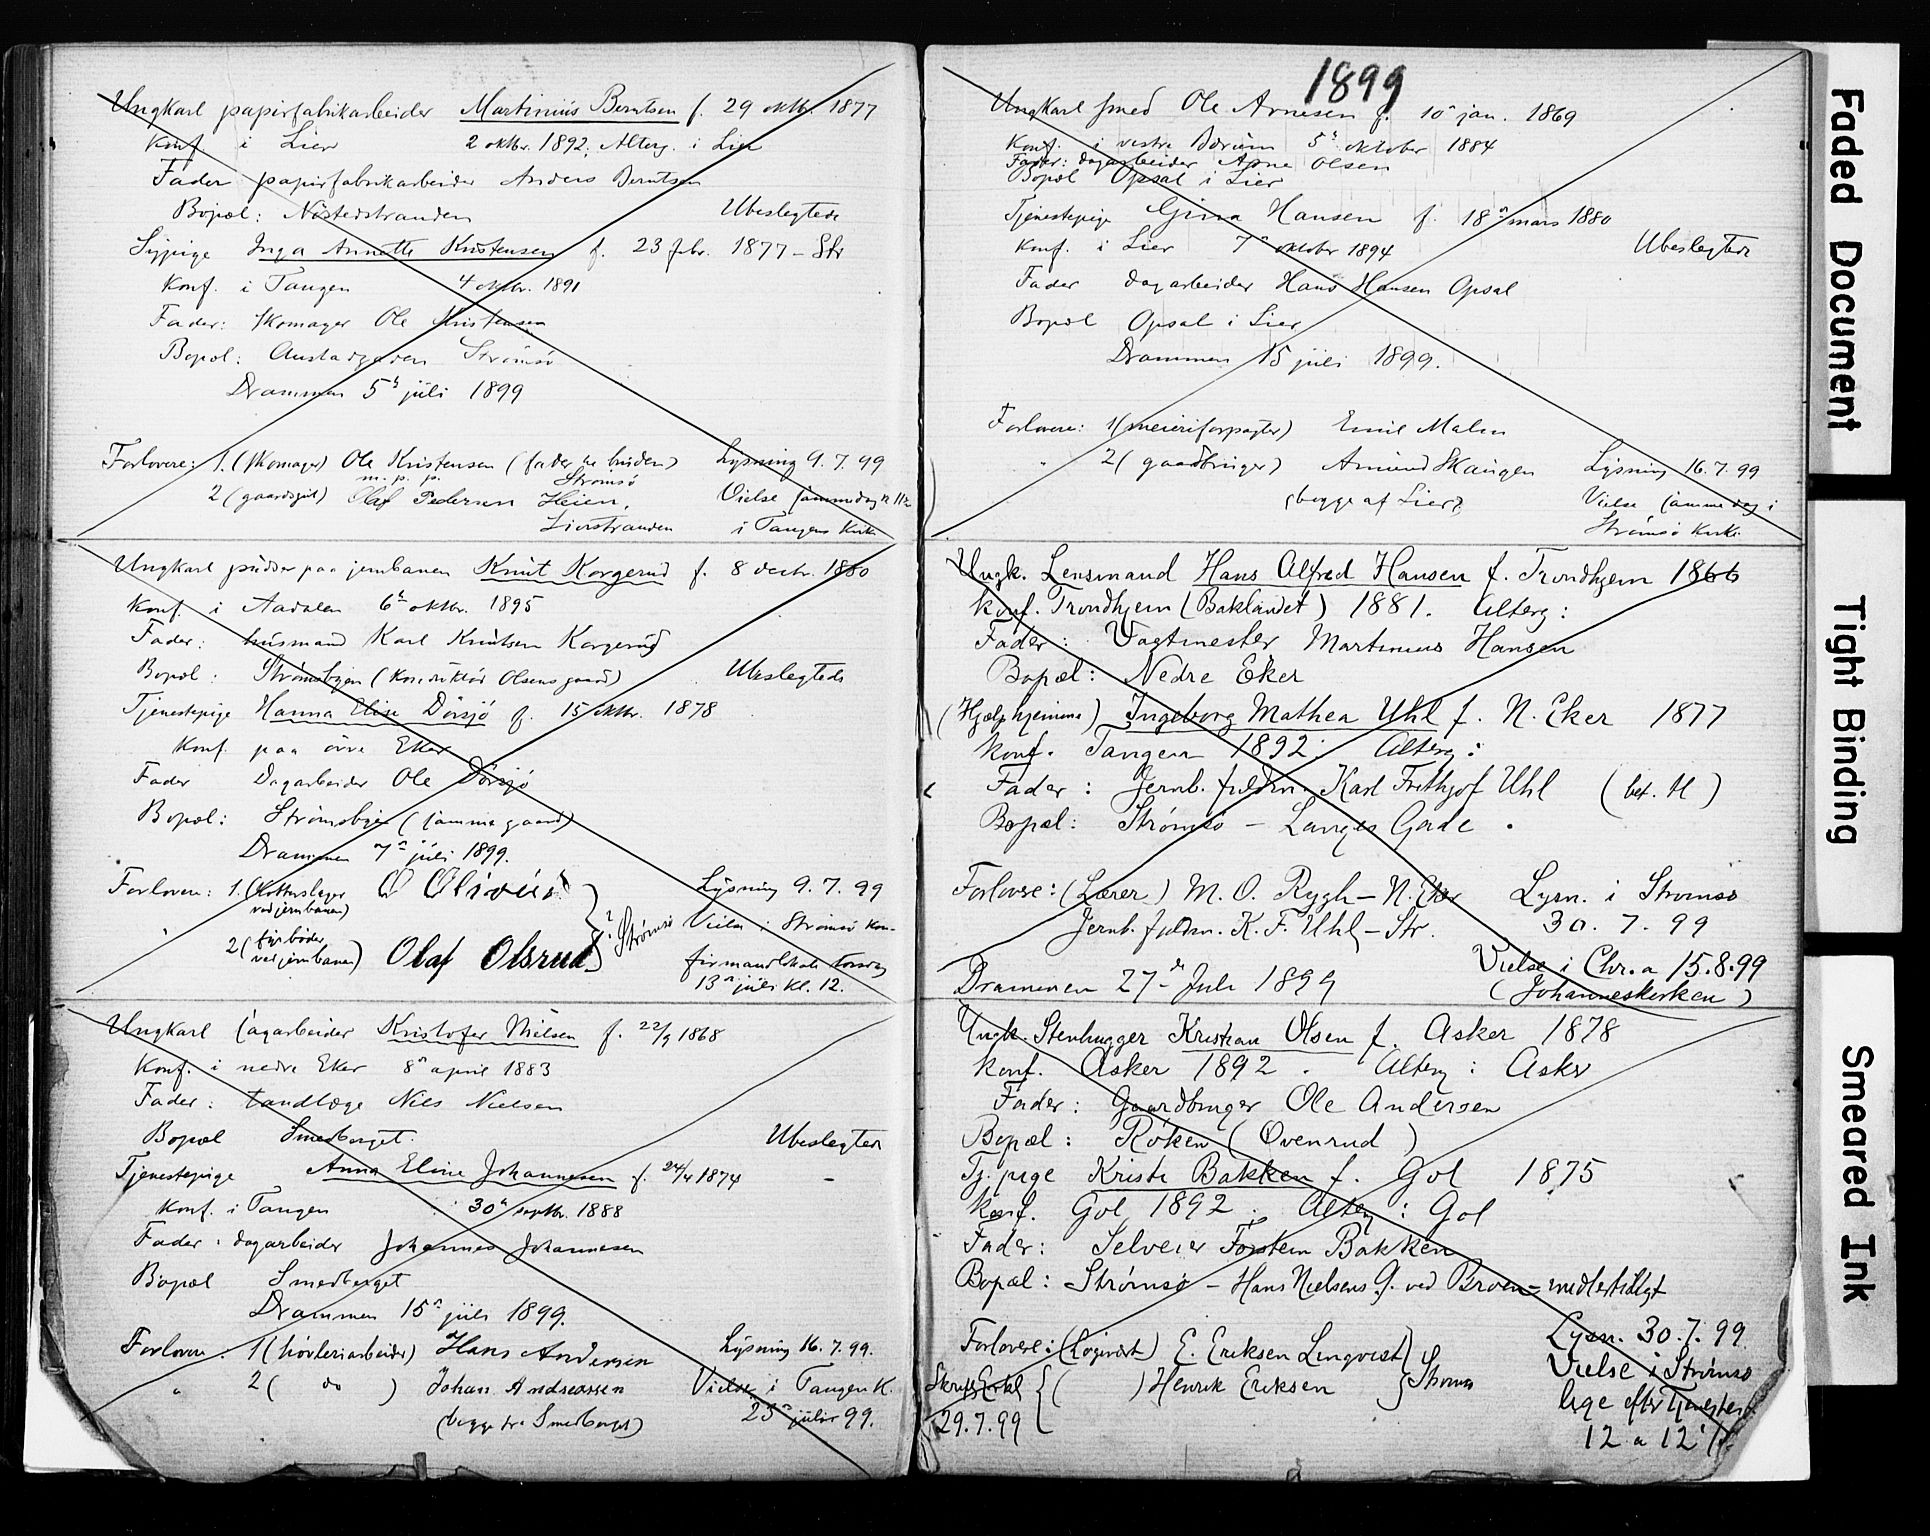 Ungkarl papirfabrikarbeider Martinius Berntsen f. 29 oktbr. 1877
Konf i Lier 2 oktbr. 1892, Alterg. i Lier
Fader papirfabrikarbeider Anders Berntsen
Bopæl: Nøstedstranden Ubeslegtede
Sypige Inga Annette Kristensen f. 23 febr. 1877 - Str
Konf. i Tangen 4 oktbr. 1891
Fader: Skomager Ole Kristensen
Bopæl: Austadgaden Strømsø
Drammen 5te juli 1899
Forlovere: 1. (skomager) Ole Kristensen (fader til bruden) Lysning 9.7.99
m. p. p. Strømsø
2 (gaardsgut) Olaf Pedersen Heien, Vielse samme dag
Lierstranden i Tangens Kirke
Ungkarl pudser paa jernbanen Knut Korgerud f. 8 decbr. 1880
Konf. i Aadalen 6te oktbr. 1895
Fader: husmand Karl Knutsen Korgerud
Bopæl: Strømsbyen (Konduktør Olsens gaard) Ubeslegtede
Tjenestepige Hanna Elise Dørsjø f. 15 oktbr. 1878
Konf. paa øvre Eker
Fader Dagarbeider Ole Dørsjø
Bopæl: Strømsbyen (samme gaard)
Drammen 7de juli 1899.
Forlovere: 1. (Klatterslager ved jernbanen) O Oliviér Lysning 9.7.99
2 (fyrbøder ved jernbanen) Olaf Olsrud Strømsø Vielse i Strømsø Kon-
firmandlokale torsdag
13de juli kl. 12.
Ungkarl sagarbeider Kristofer Nielsen f. 22/9 1868
Konf. i nedre Eker 8de april 1883
Fader: tandlæge Nils Nielsen
Bopæl Smedberget. Ubeslegtede
Tjenestepige Anna Eline Johannesen f. 24/4 1874 -
Konf. i Tangen 30te septbr. 1888
Fader: dagarbeider Johannes Johannesen
Bopæl Smedberget
Drammen 15de juli 1899.
Forlovere: 1 (høvleriarbeider) Hans Andersen Lysning 16.7.99.
" 2 ( do ) Johan Andreassen Vielse i Tangen K.
(begge fra Smedberget) 23de juli 99.
1899
Ungkarl smed Ole Arnesen f. 10de jan. 1869
Konf. i vestre Bærum 5te oktober 1884
Fader: dagarbeider Arne Olsen
Bopæl Opsal i Lier
Tjenestepige Gina Hansen f. 18de mars 1880
Konf. i Lier 7de oktober 1894 Ubeslegtede
Fader dagarbeider Hans Hansen Opsal
Bopæl Opsal i Lier
Drammen 15 juli 1899.
Forlovere: 1 (meieriforpagter) Emil Malm
" 2 (gaardbruger) Amund Skaugen Lysning 16.7.99
(begge af Lier) Vielse samme dag i
Strømsø Kirke
Ungk. Lensmand Hans Alfred Hansen f. Trondhjem 1866
Konf. Trondhjem (Baklandet) 1881. Alterg:
Fader: Vagtmester Martinius Hansen
Bopæl: Nedre Eker
(Hjælp hjemme) Ingeborg Mathea Uhl f. N. Eker 1877
Konf. Tangen 1892 Alterg:
Fader: Jernb. fuldm. Karl Frithjof Uhl (bet. 4)
Bopæl: Strømsø - Langes Gade.
Forlovere: (Lærer) M. O. Rygh - N. Eker Lysn. i Strømsø
Jernb. fuldm. K. F. Uhl - Str. 30.7.99
Vielse i Chr.a 15.8.99
Drammen 27de Juli 1899 (Johanneskirken)
Ungk. Stenhugger Kristian Olsen f. Asker 1878
Konf. Asker 1892. Alterg: Asker
Fader: Gaardbruger Ole Andersen
Bopæl: Røken (Ovenrud)
Tj. pige Kristi Bakken f. Gol 1875
Konf. Gol 1892. Alterg: Gol
Fader: Selveier Torstein Bakken
Bopæl: Strømsø - Hans Nielsens G. ved Broen = midlertidigt
Lysn. 30.7.99
Forlovere: (Logivært) E. Eriksen Lingvist Vielse i Strømsø
Skriftl Erkl ( ) Henrik Eriksen Strømsø lige efter Tjenesten
29.7.99 12 a 12½
Faded Document
Tight Binding
Smeared Ink